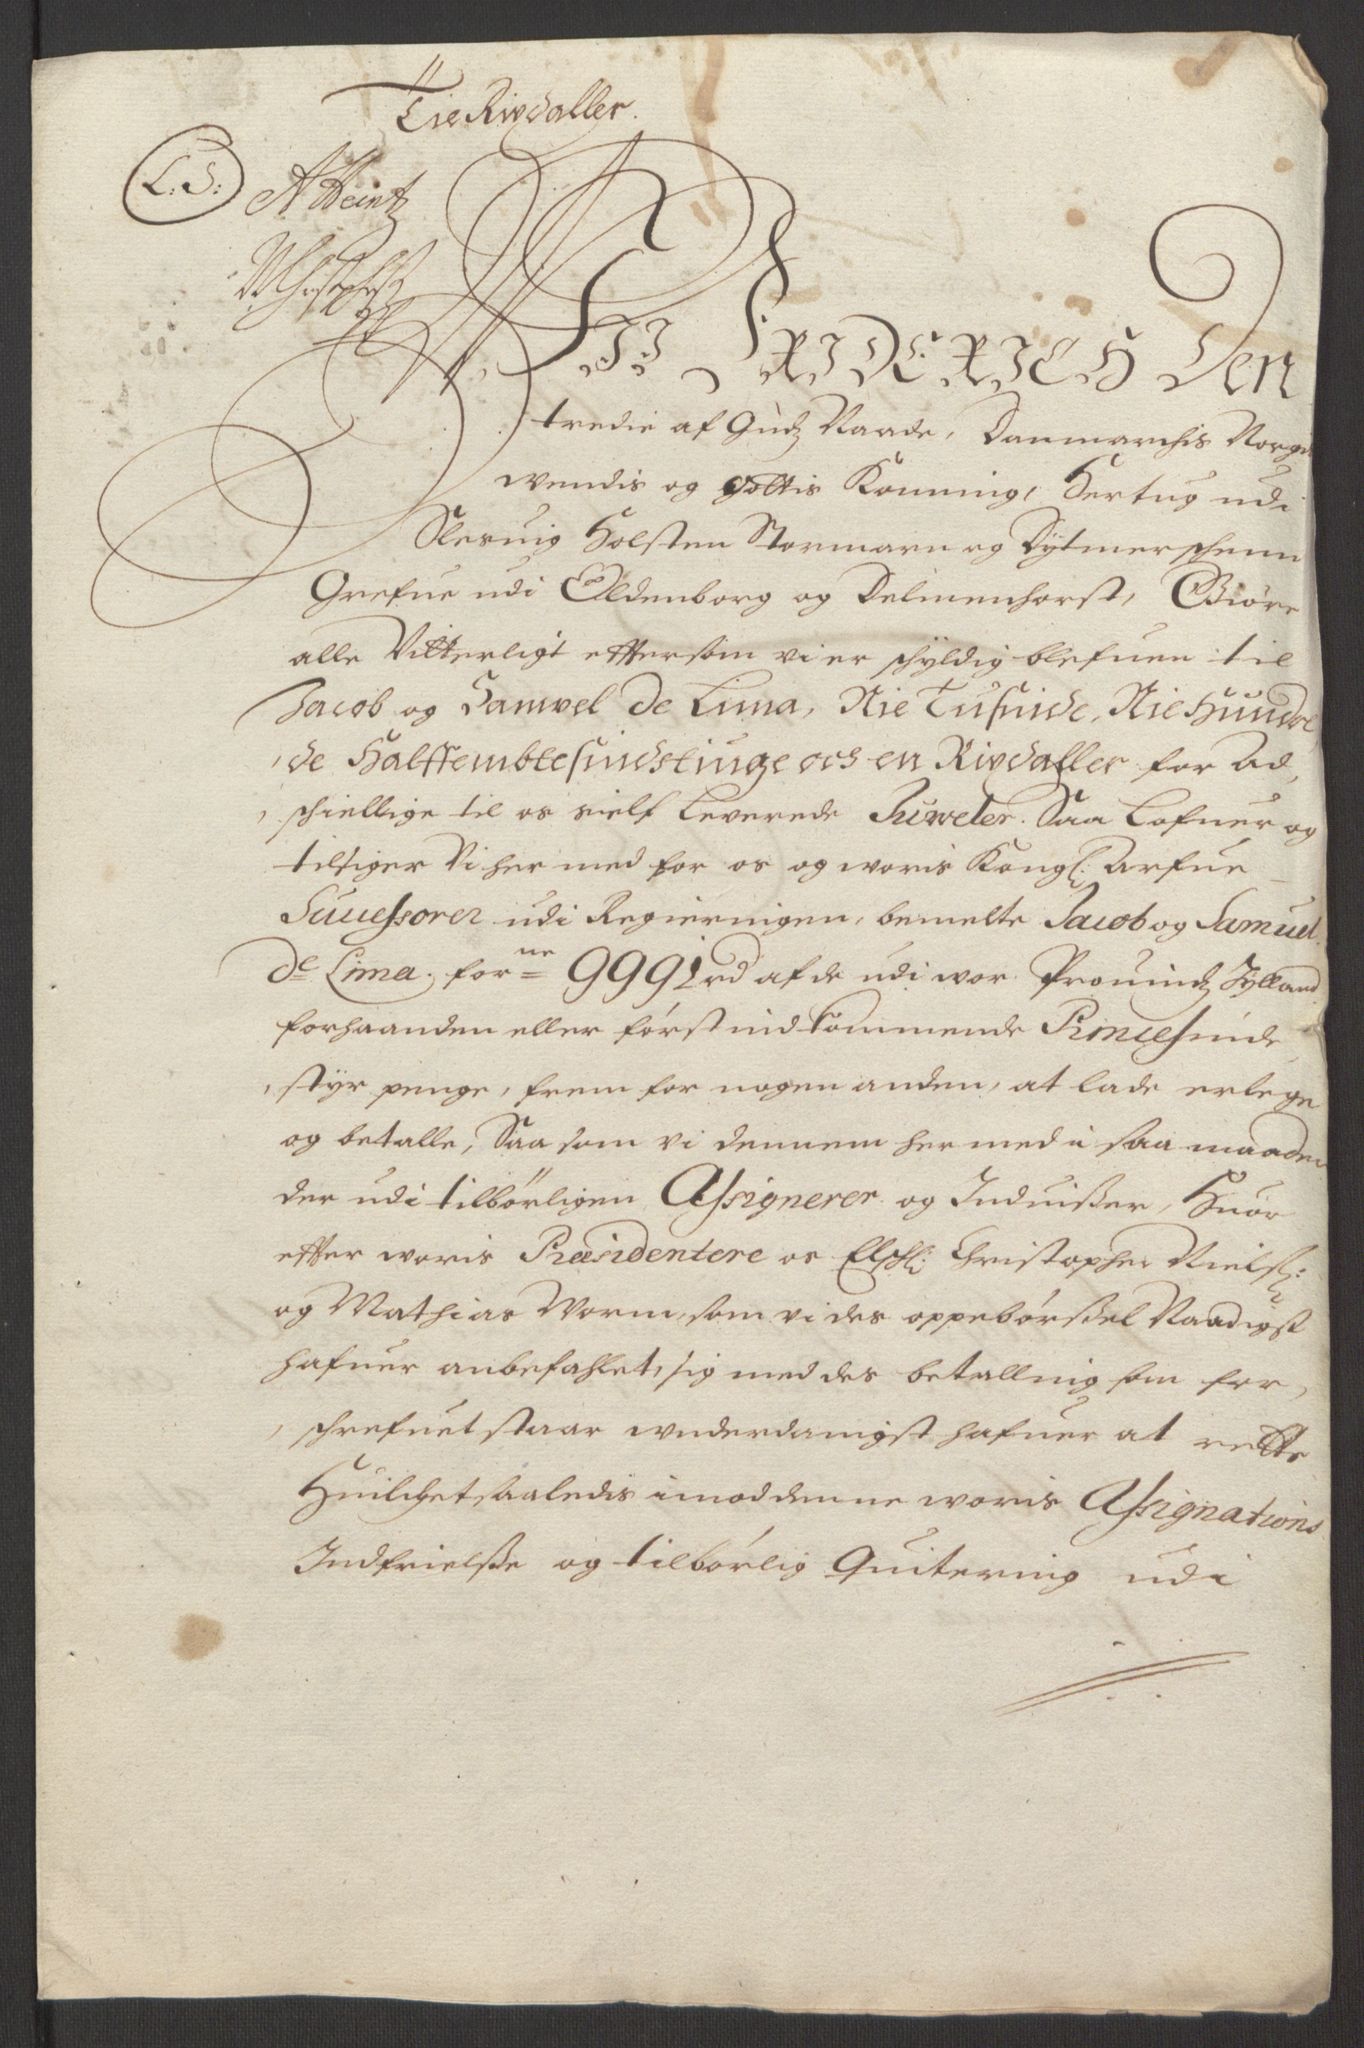 Tie Rixdaller.
L: S:
A Heintz
VII FRIDERICH Den
tredie af Gudz Naade, Danmarchis Norgis
Wendis og Gottis Konning, Hertug udi
Slesuig Holsten Stormarn og Dytmerschenn
Grefue udi Oldenborg og Delmenhorst, Giøre
alle Vitterligt eftersom vi er schyldig blefuen til
Jacob og Samvel de Lima, Nie Tusinde, Nie Hundre
de Halffembtesindstiuge och en Rixdaller for ad,
schiellige til os sielf Leverede Juweler. Saa Lofuer og
tilsiger Vi her med for os og woris Kongl: Arfue
Successorer udi Regieringen, bemelte Jacob og Samuel
de Lima, forne 9991 rd af de udi wor Prouindz Jylland
forhaanden eller først indkommende Princessinde
styr penge, frem for nogen anden, at lade erlege
og betalle, Saa som vi dennem her med i saa maader
der udi tilbørligen Assignerer og Induisser, Huor
effter woris Præsidentere os Elschl: Christopher Nielsz:
og Mathias Worm, som vi des oppebørssel Naadigst
hafuer anbefahlet, sig med des betalling som for,
schrefuet staar underdanigst hafuer at rette
Huilchet saaledis imod denne woris Assignations
Indfrielsse og tilbørlig Quitering udi